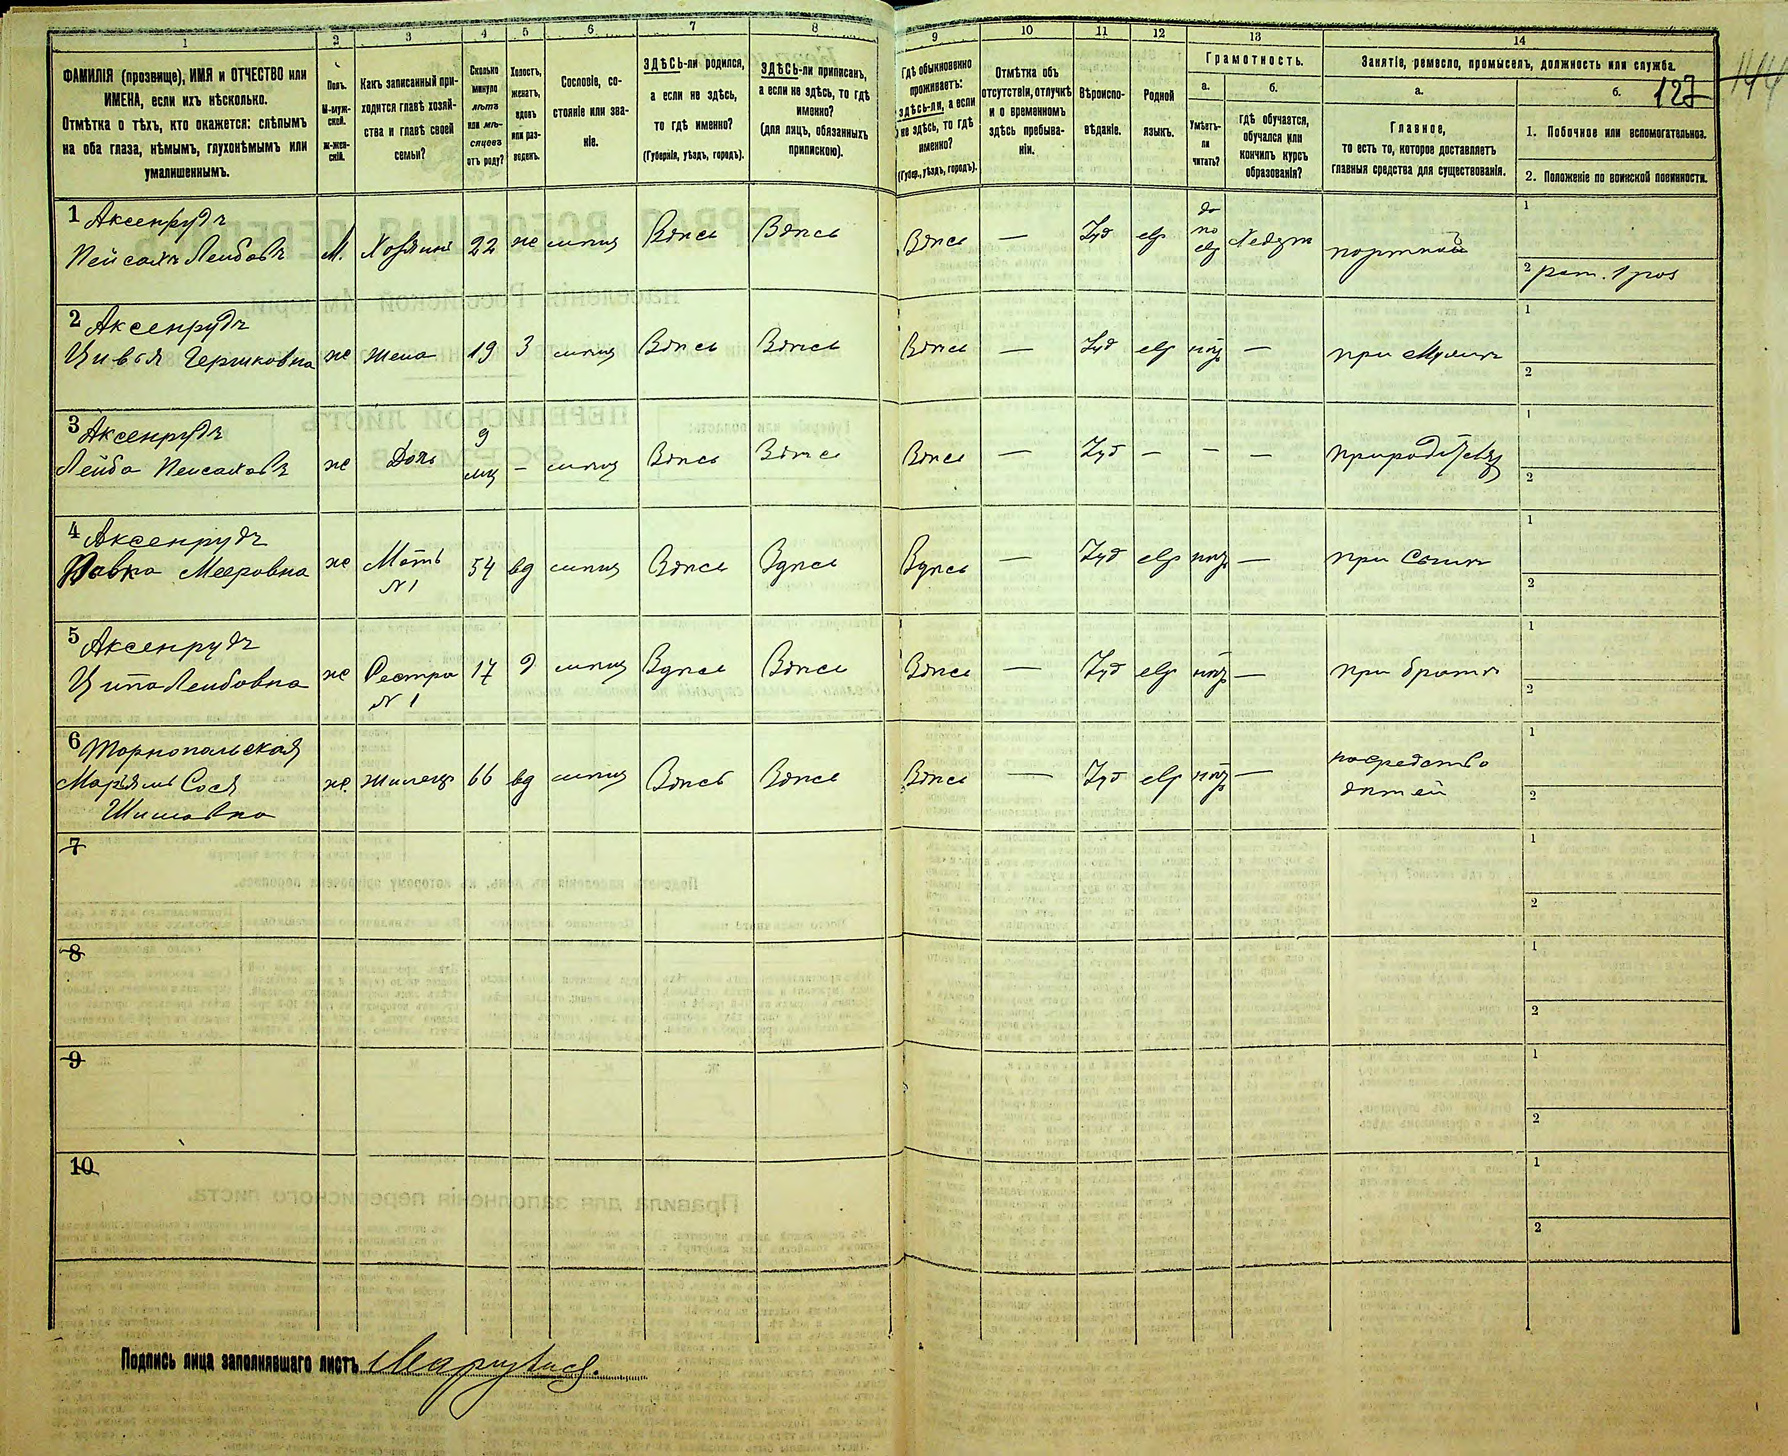 1 2 3 4 5 6 7 8 9 10 11 12 13 14
ФАМИЛІЯ (прозвище), ИМЯ и ОТЧЕСТВО или
ИМЕНА, если ихъ нѣсколько.
Отмѣтка о тѣхъ, кто окажется: слѣпымъ
на оба глаза, нѣмымъ, глухонѣмымъ или
умалишеннымъ.
Полъ.
М-муж-
ской.
ж-жен-
скій.
Какъ записанный при-
ходится главѣ хозяй-
ства и главѣ своей
семьи?
Сколько
минуло
лѣтъ
или мѣ-
сяцевъ
отъ роду?
Холостъ,
женатъ,
вдовъ
или раз-
веденъ.
Сословіе, со-
стояніе или зва-
ніе.
ЗДѢСЬ-ли родился,
а если не здѣсь,
то гдѣ именно?
(Губернія, уѣздъ, городъ).
ЗДѢСЬ-ли приписанъ,
а если не здѣсь, то гдѣ
именно?
(для лицъ, обязанныхъ
припискою).
Гдѣ обыкновенно
проживаетъ:
здѣсь-ли, а если
не здѣсь, то гдѣ
именно?
(Губер., уѣздъ, городъ).
Отмѣтка объ
отсутствіи, отлучкѣ
и о временномъ
здѣсь пребыва-
ніи.
Вѣроиспо-
вѣданіе.
Родной
языкъ.
Грамотность.
а.
Умѣетъ-
ли
читать?
б.
гдѣ обучается,
обучался или
кончилъ курсъ
образованія?
Занятіе, ремесло, промыселъ, должность или служба.
а.
Главное,
то есть то, которое доставляетъ
главныя средства для существованія.
б. 127 144
1. Побочное или вспомогательное.
2. Положеніе по воинской повинности.
1 Аксенрудъ
Пейсахъ Лейбовъ М. Хозяинъ 22 же мѣщ Здѣсь Здѣсь Здѣсь — Іуд евр да по евр Хедеръ портной 1
2 рат. 1 раз
2 Аксенрудъ
Цивья Гершковна же жена 19 З мѣщ Здѣсь Здѣсь Здѣсь — Іуд евр — при Мужѣ 1
2
3 Аксенрудъ
Лейба Пейсаховъ же Дочь 9 мц – мѣщ Здѣсь Здѣсь Здѣсь — Іуд – – – 1
2
4 Аксенрудъ
Мееровна же Мать 54 вд мѣщ Здѣсь Здѣсь Здѣсь — Іуд евр — при Сынѣ 1
№ 1 2
5 Аксенрудъ
Ципа Лейбовна же Сестра 17 д мѣщ Здѣсь Здѣсь Здѣсь — Іуд евр — при братѣ 1
№ 1 2
6 Торнопольская
Маріямъ Сося же жилец 66 вд мѣщ Здѣсь Здѣсь Здѣсь — Іуд евр — посредство 1
Шимовна дѣтей 2
7 1
2
8 1
2
9 1
2
10 1
2
Подпись лица заполнявшаго листъ